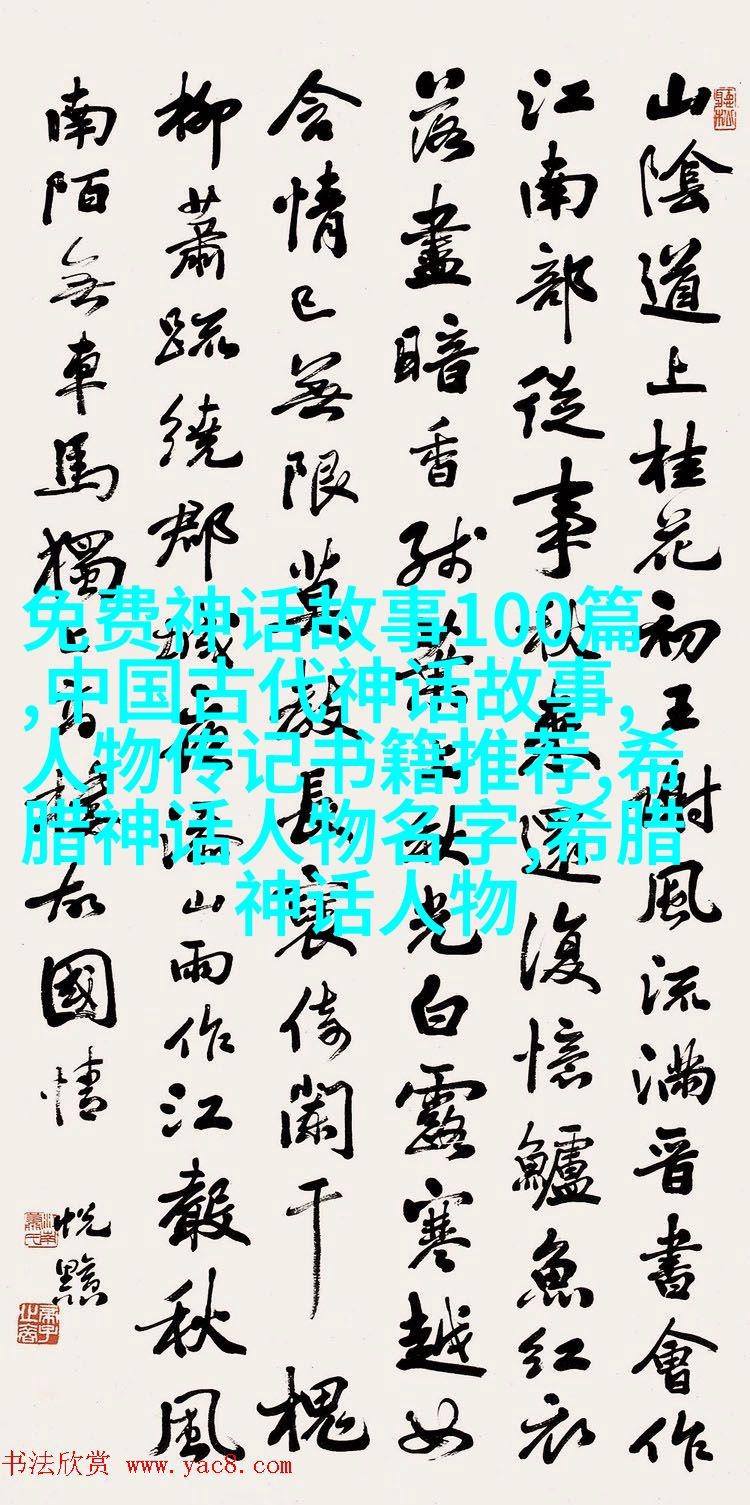 山陰道上桂花初王謝風流滿晋書會作
江南部從事秋來還復憶鱸魚紅衣
落盡暗香殘葉上秋光白露寒越女
含情已無限莫教長褎倚闌干 槐
柳蕭疏繞郡城夜添山雨作江聲秋風
南陌無車馬獨上高樓故國情
免费神话故事100篇
,中国古代神话故事,
人物传记书籍推荐,希
腊神话人物名字,希腊
神话人物
书法欣赏 www.yac8.com